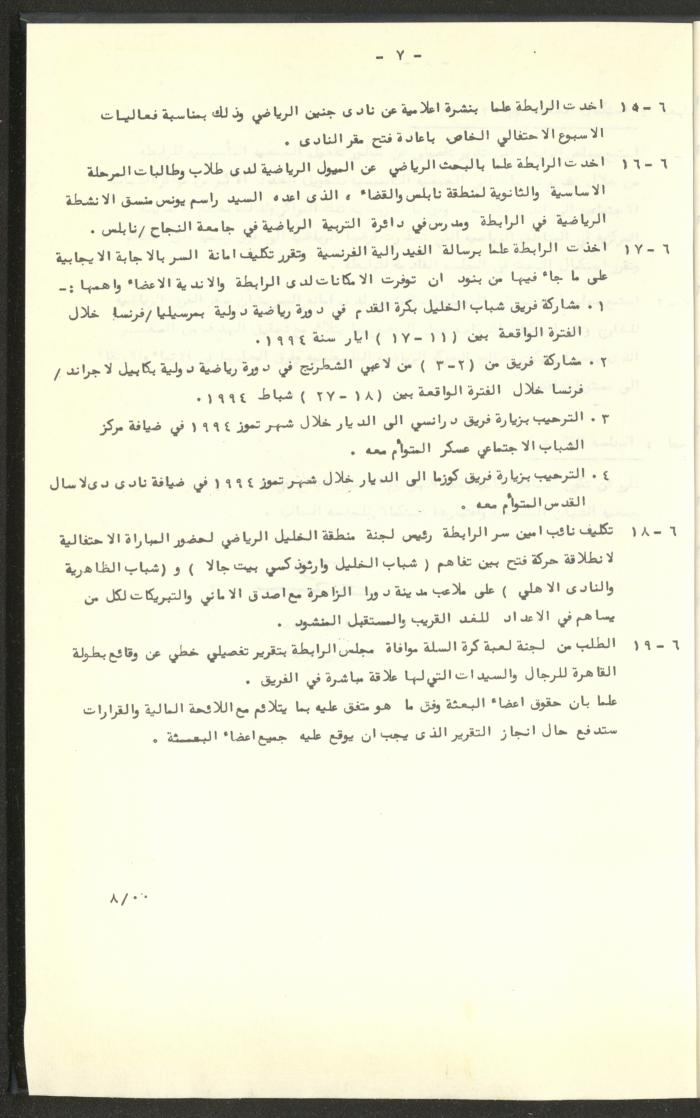 - ٧ -
٦-١٥ اخدت الرابطة علما بنشرة اعلامية عن نادى جنين الرياضي وذلك بمناسبة فعاليات
الاسبوع الاحتفالي الخاص باعادة فتح مقر النادى .
٦-١٦ اخدت الرابطة علما بالبحث الرياضي عن الميول الرياضية لدى طلاب وطالبات المرحلة
الاساسية والثانوية لمنطقة نابلس والقضاء ، الذى اعده السيد راسم يونس منسق الانشطة
الرياضية في الرابطة ومدرس في دائرة التربية الرياضية في جامعة النجاح /نابلس .
٦-١٧ اخذت الرابطة علما برسالة الفيدرالية الفرنسية وتقرر تكليف امانة السر بالاجابة الايجابية
على ما جاء فيها من بنود ان توفرت الامكانات لدى الرابطة والاندية الاعضاء واهمها :-
١. مشاركة فريق شباب الخليل بكرة القدم في دورة رياضية دولية بمرسيليا /فرنسا خلال
الفترة الواقعة بين (١١-١٧ ) ايار سنة ١٩٩٤.
٢. مشاركة فريق من (٢-٣ ) من لاعبي الشطرنج في دورة رياضية دولية بكابيل لاجراند /
فرنسا خلال الفترة الواقعة بين (١٨-٢٧ ) شباط ١٩٩٤.
٣. الترحيب بزيارة فريق درانسي الى الديار خلال شهر تموز ١٩٩٤ في ضيافة مركز
الشباب الاجتماعي عسكر المتوأم معه .
٤. الترحيب بزيارة فريق كوزما الى الديار خلال شهر تموز ١٩٩٤ في ضيافة نادى دى لاسال
القدس المتوأم معه .
٦-١٨ تكليف نائب امين سر الرابطة رئيس لجنة منطقة الخليل الرياضي لحضور المباراة الاحتفالية
لانطلاقة حركة فتح بين تفاهم ( شباب الخليل وارثوذكسي بيت جالا ) و (شباب الظاهرية
والنادى الاهلي ) على ملاعب مدينة دورا الزاهرة مع اصدق الاماني والتبريكات لكل من
يساهم في الاعداد للغد القريب والمستقبل المنشود .
٦-١٩ الطلب من لجنة لعبة كرة السلة موافاة مجلس الرابطة بتقرير تفصيلي خطي عن وقائع بطولة
القاهرة للرجال والسيدات التي لها علاقة مباشرة في الفريق .
علما بان حقوق اعضاء البعثة وفق ما هو متفق عليه بما يتلائم مع اللائحة المالية والقرارات
ستدفع حال انجاز التقرير الذى يجب ان يوقع عليه جميع اعضاء البعـــثة .
٨/٠٠